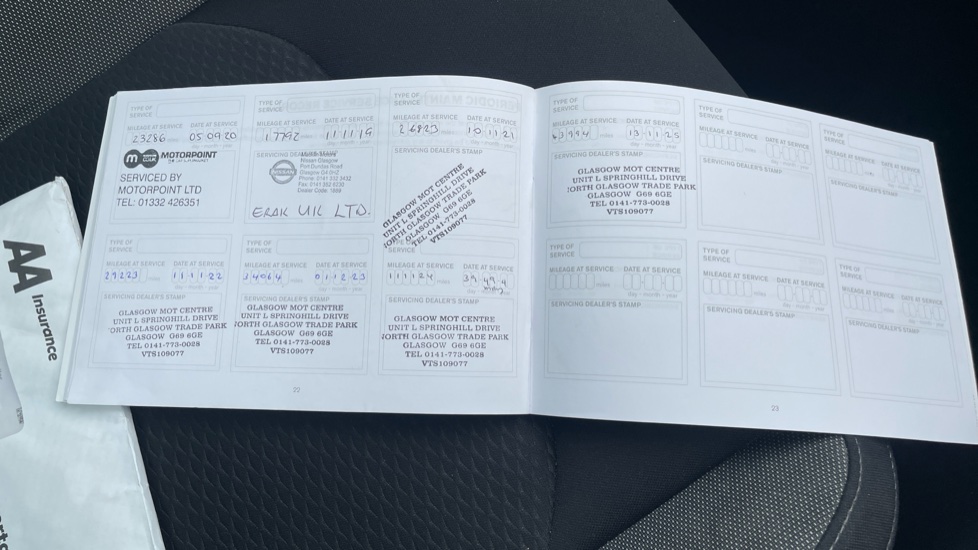 AA
Insurance
TYPE OF
SERVICE
MILEAGE AT SERVICE DATE AT SERVICE
23286 miles 05 09 20
day - month - year
MOTORPOINT
SERVICED BY
MOTORPOINT LTD
TEL: 01332 426351
TYPE OF
SERVICE
MILEAGE AT SERVICE DATE AT SERVICE
17792 miles 11 11 19
day - month - year
SERVICING DEALER'S STAMP
NISSAN
Nissan Glasgow
Port Dundas Road
ERAK UK LTD.
TYPE OF
SERVICE
MILEAGE AT SERVICE DATE AT SERVICE
26823 miles 10 11 21
day - month - year
SERVICING DEALER'S STAMP
GLASGOW MOT CENTRE
UNIT L SPRINGHILL DRIVE
NORTH GLASGOW TRADE PARK
GLASGOW G69 6GE
TEL 0141-773-0028
VTS109077
TYPE OF
SERVICE
MILEAGE AT SERVICE DATE AT SERVICE
29223 miles 11 11 22
day - month - year
SERVICING DEALER'S STAMP
GLASGOW MOT CENTRE
UNIT L SPRINGHILL DRIVE
ORTH GLASGOW TRADE PARK
GLASGOW G69 6GE
TEL 0141-773-0028
VTS109077
TYPE OF
SERVICE
MILEAGE AT SERVICE DATE AT SERVICE
34064 miles 01 12 23
day - month - year
SERVICING DEALER'S STAMP
GLASGOW MOT CENTRE
UNIT L SPRINGHILL DRIVE
ORTH GLASGOW TRADE PARK
GLASGOW G69 6GE
TEL 0141-773-0028
VTS109077
SERVICE
MILEAGE AT SERVICE DATE AT SERVICE
11 11 24
SERVICING DEALER'S STAMP
GLASGOW MOT CENTRE
UNIT L SPRINGHILL DRIVE
NORTH GLASGOW TRADE PARK
GLASGOW G69 6GE
TEL 0141-773-0028
VTS109077
22
TYPE OF
SERVICE
MILEAGE AT SERVICE DATE AT SERVICE
43994 miles 13 11 25
day - month - year
SERVICING DEALER'S STAMP
GLASGOW MOT CENTRE
UNIT L SPRINGHILL DRIVE
NORTH GLASGOW TRADE PARK
GLASGOW G69 6GE
TEL 0141-773-0028
VTS109077
TYPE OF
SERVICE
MILEAGE AT SERVICE DATE AT SERVICE
miles day - month - year
SERVICING DEALER'S STAMP
TYPE OF
SERVICE
MILEAGE AT SERVICE DATE AT SERVICE
miles day - month - year
SERVICING DEALER'S STAMP
TYPE OF
SERVICE
MILEAGE AT SERVICE DATE AT SERVICE
miles day - month - year
SERVICING DEALER'S STAMP
TYPE OF
SERVICE
MILEAGE AT SERVICE DATE AT SERVICE
miles day - month - year
SERVICING DEALER'S STAMP
TYPE OF
SERVICE
MILEAGE AT SERVICE DATE AT SERVICE
miles day - month - year
SERVICING DEALER'S STAMP
23